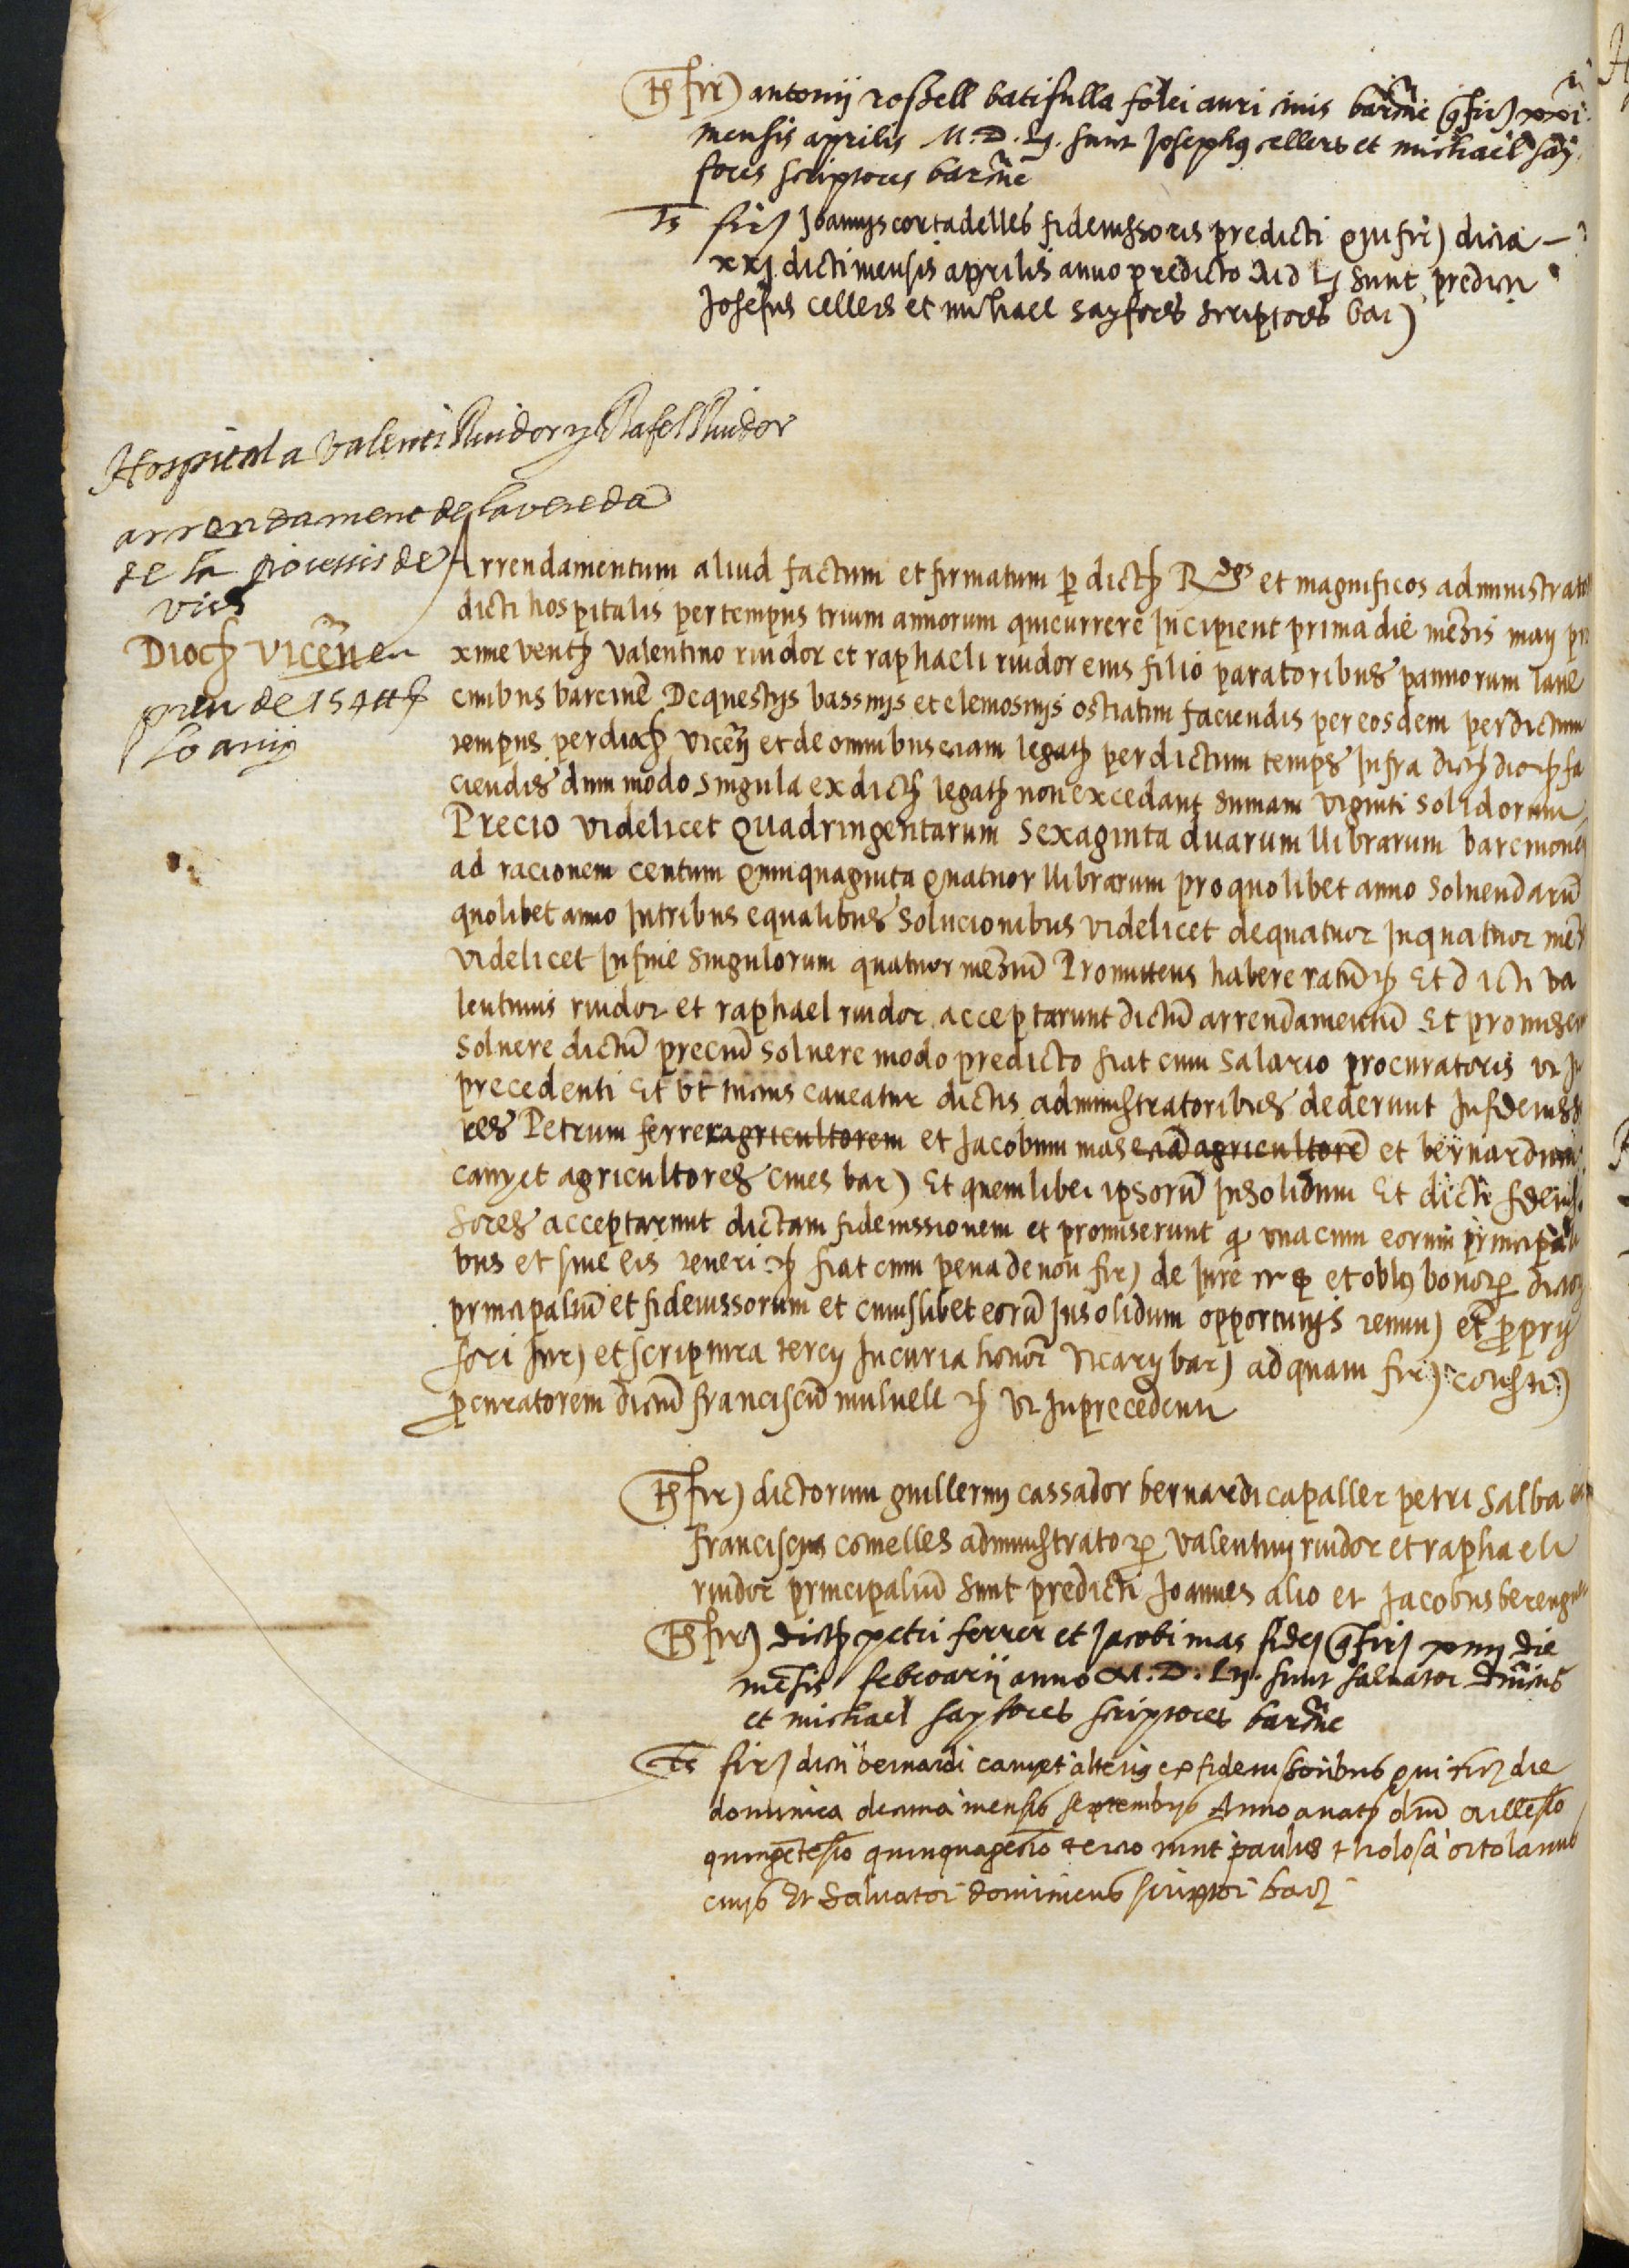 Ts fir) antonij rossell batifulla folei auri civis barcine q fir) xxi
mensis aprilis M. D. Lij. sunt Josephus cellers et michael say
fores scriptores barcine
Ts fir) Joannis cortadelles fideiussoris predicti qui fir) dicta
xxj dicti mensis aprilis anno predicto MD Lij sunt predicti
Josefus cellers et michael sayfores scriptores bar)
Hospital a valenti Riudor y Rafel Riudor
arrendament de la
de la
vich
Arrendamentum aliud factum et firmatum per dictos Rdos et magnificos administrato
dicti hospitalis per tempus trium annorum qui currere Incipient prima die mensis maij pro
Dioc vicen en
xime vent valentino riudor et raphaeli riudor eius filio paratoribus pannorum lane
preu de 154 ll
civibus barcine De questijs bassinijs et elemosinijs ostiatim faciendis per eosdem per dictum
lo any
tempus per dioc vicen et de omnibus eciam legatis per dictum tempus Infra dict dioc fa
ciendis dummodo singula ex dictis legatis non excedant sumam viginti solidorum
Precio videlicet Quadringentarum sexaginta duarum llibrarum barcinone
ad racionem centum quinquaginta quatuor llibrarum pro quolibet anno solvendarum
quolibet anno In tribus equalibus solucionibus videlicet de quatuor In quatuor mens
videlicet In fine singulorum quatuor mensium Promittens habere ratum Et dicti va
lentinus riudor et raphael riudor acceptarunt dictum arrendamentum Et promiser
solvere dictum precium solvere modo predicto fiat cum salario procuratoris ut In
precedenti Et ut tucius caveatur dictis administratoribus dederunt In fideiusso
res Petrum ferrer agricultorem et Jacobum mas agricultorem et bernardum
canyet agricultores cives bar) Et quemlibet ipsorum Insolidum Et dicti fideius
sores acceptarunt dictam fideiussionem et promiserunt q una cum eorum principali
bus et sine eis teneri fiat cum pena de non fir) de Jure et oblig bonorum dictor
principalium et fideiussorum et cuiuslibet eorum Insolidum opportunis renun) et proprij
fori Jur) et scriptura tercij In curia honor vicarij bar) ad quam fir) constit)
procuratorem dictum franciscum mulnell ut In precedenti
Ts fir) dictorum guillermj cassador bernardi capaller petri salba
francisci comelles administrator valentinj riudor et raphaelis
riudor principalium sunt predicti Joannes alio et Jacobus bereng
Ts fir) dict petri ferrer et Jacobi mas fidei q fir) die
mensis febroarij anno M. D. Lij. sunt salvator
et michael sayfores scriptores barcine
Ts fir) dicti bernardi canyet alterius ex fideiussoribus qui fir) die
dominica decima mensis septembris Anno a nat dni millesimo
quingetesimo quinquagesimo tercio sunt paulus tholosa ortolanus
civis et Salvator dominicus scriptor bar)